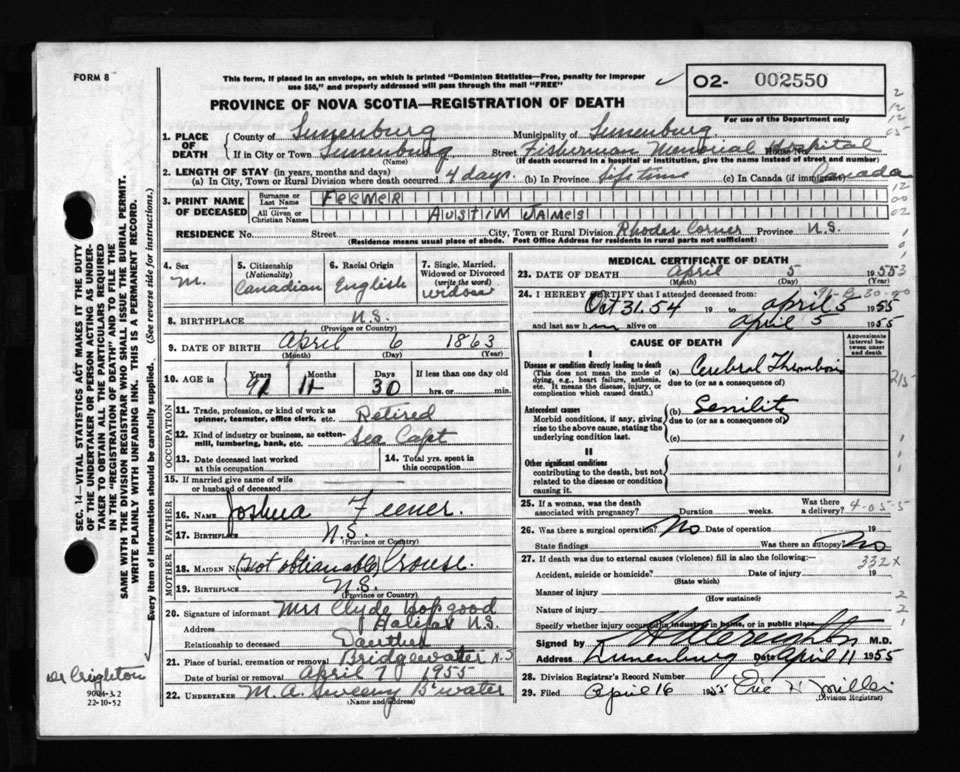 FORM 8
This form, if placed in an envelope, on which is printed "Dominion Statistics—Free, penalty for improper
use $50," and properly addressed will pass through the mail "FREE"
02- 002550
PROVINCE OF NOVA SCOTIA—REGISTRATION OF DEATH
For use of the Department only
1. PLACE OF DEATH
County of Lunenburg Municipality of Lunenburg
If in City or Town Lunenburg Street Fisherman Memorial Hospital House No.
(Name) (If death occurred in a hospital or institution, give the name instead of street and number)
2. LENGTH OF STAY (in years, months and days)
(a) In City, Town or Rural Division where death occurred 4 days. (b) In Province Life time (c) In Canada (if immigrant) Canada
3. PRINT NAME OF DECEASED
Surname or Last Name FEENER
All Given or Christian Names AUSTIN JAMES
RESIDENCE No. Street City, Town or Rural Division Rhodes Corner Province N.S.
(Residence means usual place of abode. Post Office Address for residents in rural parts not sufficient)
4. Sex M.
5. Citizenship (Nationality) Canadian
6. Racial Origin English
7. Single, Married, Widowed or Divorced (write the word) widow
8. BIRTHPLACE N.S.
(Province or Country)
9. DATE OF BIRTH April 6 1863
(Month) (Day) (Year)
10. AGE in Years 91 Months 11 Days 30 If less than one day old
hrs. or min.
OCCUPATION
11. Trade, profession, or kind of work as spinner, teamster, office clerk, etc. Retired
12. Kind of industry or business, as cotton-mill, lumbering, bank, etc. Sea Capt
13. Date deceased last worked at this occupation
14. Total yrs. spent in this occupation
15. If married give name of wife or husband of deceased —
FATHER
16. NAME Joshua Feener
17. BIRTHPLACE N.S.
(Province or Country)
MOTHER
18. MAIDEN NAME (not obtianable) Crouse.
19. BIRTHPLACE N.S.
(Province or Country)
20. Signature of informant Mrs Clyde Hopgood
Address Halifax N.S.
Relationship to deceased Dauther
21. Place of burial, cremation or removal Bridgewater N.S
Date of burial or removal April 7 1955
22. UNDERTAKER M.A. Sweeny B'water
(Name and address)
MEDICAL CERTIFICATE OF DEATH
23. DATE OF DEATH April 5 1955
(Month) (Day)
24. I HEREBY CERTIFY that I attended deceased from:
Oct 31. 54 19 to April 5 1955
and last saw him alive on April 5 1955
CAUSE OF DEATH
Approximate interval between onset and death
I
Disease or condition directly leading to death (a) Cerebral Thrombosis
(This does not mean the mode of dying, e.g., heart failure, asthenia, etc. It means the disease, injury, or complication which caused death.)
due to (or as a consequence of)
Antecedent causes (b) Senility
Morbid conditions, if any, giving rise to the above cause, stating the underlying condition last.
due to (or as a consequence of)
(c)
II
Other significant conditions
contributing to the death, but not related to the disease or condition causing it.
25. If a woman, was the death associated with pregnancy? Duration weeks. Was there a delivery?
4-05-5
26. Was there a surgical operation? No Date of operation 19
State findings Was there an autopsy? No
27. If death was due to external causes (violence) fill in also the following:—
332X
Accident, suicide or homicide? Date of injury 19
(State which)
Manner of injury
(How sustained)
Nature of injury
Specify whether injury occurred in industry in home, or in public place
Signed by M.D.
Address Lunenburg Date April 11 1955
28. Division Registrar's Record Number
29. Filed April 16 1955
(Division Registrar)
SEC. 14—VITAL STATISTICS ACT MAKES IT THE DUTY
OF THE UNDERTAKER OR PERSON ACTING AS UNDER-
TAKER TO OBTAIN ALL THE PARTICULARS REQUIRED
IN THE "REGISTRATION OF DEATH" AND TO FILE THE
SAME WITH THE DIVISION REGISTRAR WHO SHALL ISSUE THE BURIAL PERMIT.
WRITE PLAINLY WITH UNFADING INK. THIS IS A PERMANENT RECORD.
Every item of information should be carefully supplied. (See reverse side for instructions.)
Dr Creighton
22-10-52